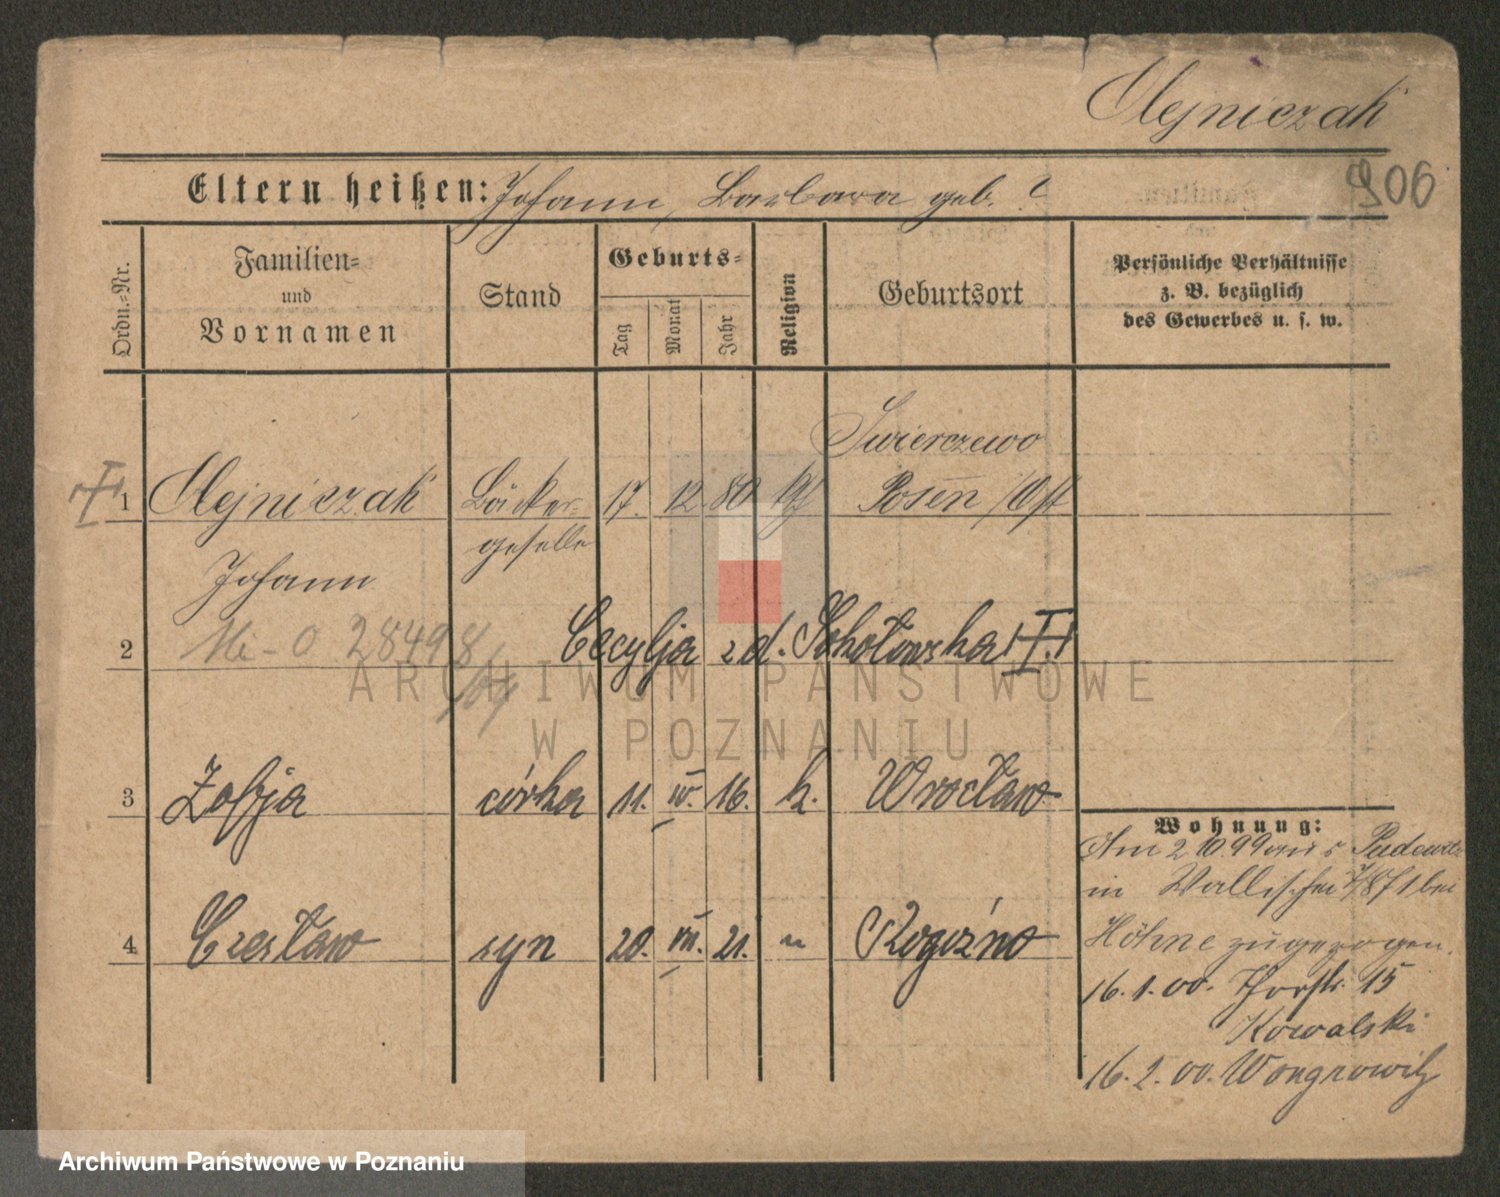 Olejniczak
906
Eltern heißen: Johann, Barbara geb. ?
Ordn.=Nr.
Familien=
und
Vornamen
Stand
Geburts=
Tag
Monat
Jahr
Religion
Geburtsort
Persönliche Verhältnisse
z. B. bezüglich
des Gewerbes u. s. w.
Swierczewo
1 Olejniczak Bäcker= 17. 12 80 Posen /Ost
geselle
Johann
2 28498 Cecylja zd. Sokołowska
3 Zofja córka 11. IV. 16. k. Wrocław
4 Czesław syn 20. VII. 21. " Rogoźno
Wohnung:
Am 2 10.99 aus Pudewitz
in Wallischei 7/8 bei
Höhne zugezogen.
16. 1. 00. 15
Kowalski
16. 2. 00. Wongrowitz
ARCHIWUM PAŃSTWOWE
W POZNANIU
Archiwum Państwowe w Poznaniu